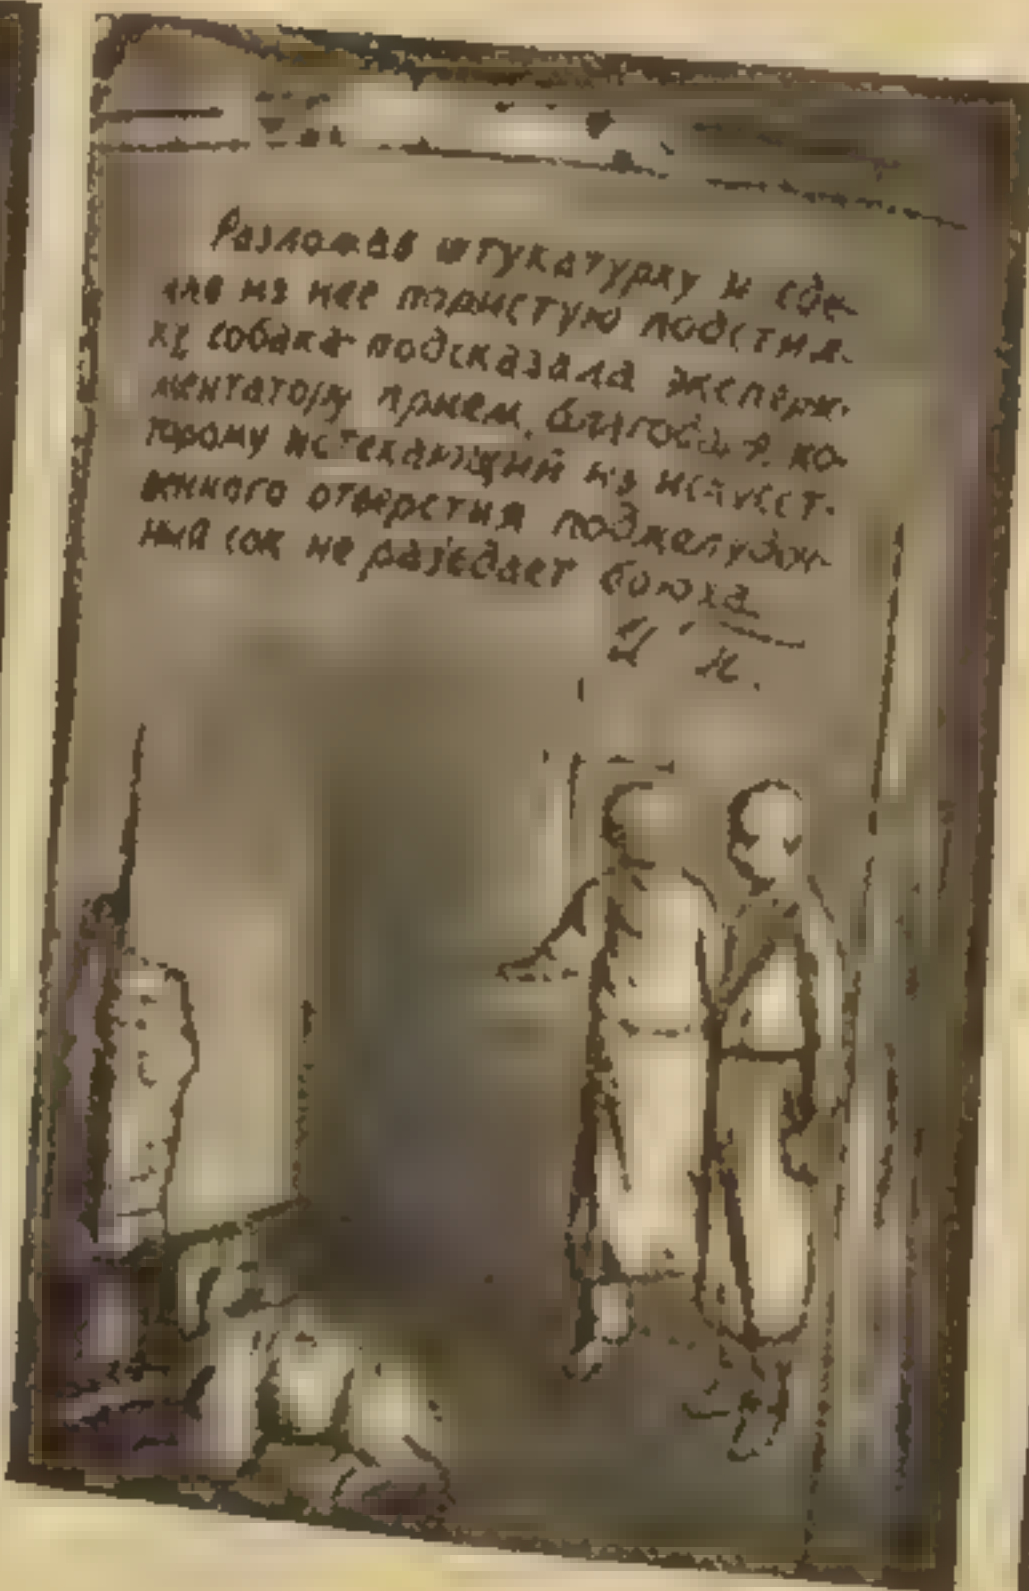 Разломав штукатурку и сде-
лав из нее пористую подстил-
ку собака подсказала экспери-
ментатору прием, благодаря ко-
торому истекающий из искусст-
венного отверстия поджелудоч-
ный сок не разъедает брюха